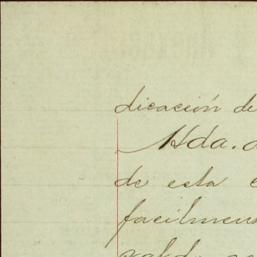 dicación de
Hda. d
de esta
facilmen